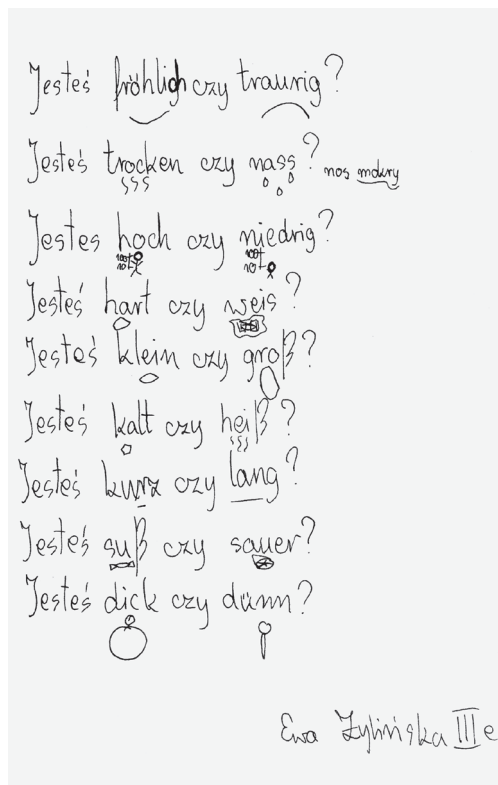 Jesteś fröhlich czy traurig?
Jesteś trocken czy nass? nos mokry
Jestes hoch czy niedrig?
Jesteś hart czy weis?
Jesteś klein czy groß?
Jesteś kalt czy heiß?
Jesteś kurz czy lang?
Jesteś suß czy sauer?
Jesteś dick czy dünn?
Ewa Żylińska III e